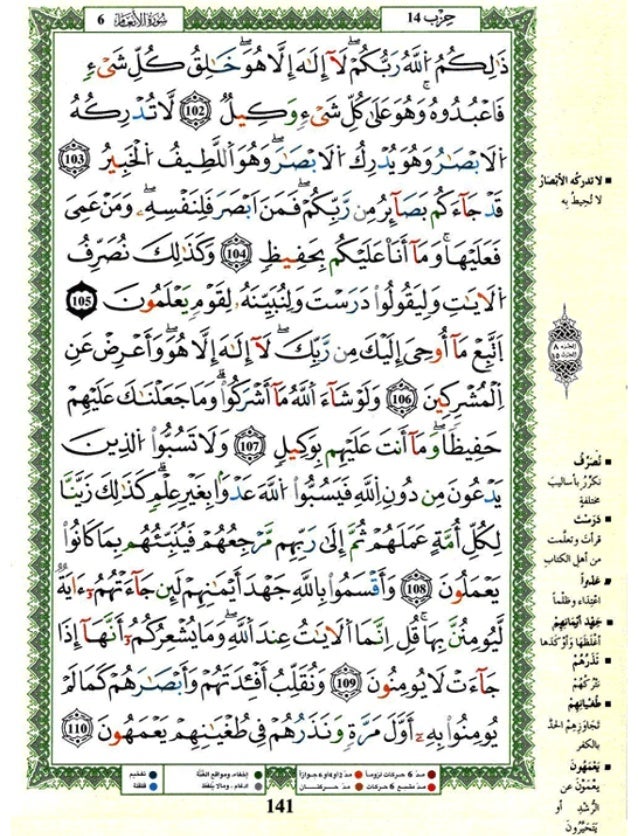 حِزْب 14
سُورَةُ الأَنْعَام 6
ذَٰلِكُمُ اللَّهُ رَبُّكُمْ لَآ إِلَٰهَ إِلَّا هُوَ خَٰلِقُ كُلِّ شَيْءٍ
فَاعْبُدُوهُ وَهُوَ عَلَىٰ كُلِّ شَيْءٍ وَكِيلٌ 102 لَّا تُدْرِكُهُ
الَابْصَٰرُ وَهُوَ يُدْرِكُ الَابْصَٰرَ وَهُوَ اللَّطِيفُ الْخَبِيرُ 103
قَدْ جَآءَكُم بَصَآئِرُ مِن رَّبِّكُمْ فَمَنَ ابْصَرَ فَلِنَفْسِهِ وَمَنْ عَمِيَ
فَعَلَيْهَا وَمَآ أَنَا عَلَيْكُم بِحَفِيظٍ 104 وَكَذَٰلِكَ نُصَرِّفُ
الَايَٰتِ وَلِيَقُولُوا دَرَسْتَ وَلِنُبَيِّنَهُ لِقَوْمٍ يَعْلَمُونَ 105
اتَّبِعْ مَآ أُوحِيَ إِلَيْكَ مِن رَّبِّكَ لَآ إِلَٰهَ إِلَّا هُوَ وَأَعْرِضْ عَنِ
الْمُشْرِكِينَ 106 وَلَوْ شَآءَ اللَّهُ مَآ أَشْرَكُوا وَمَا جَعَلْنَٰكَ عَلَيْهِمْ
حَفِيظًا وَمَآ أَنتَ عَلَيْهِم بِوَكِيلٍ 107 وَلَا تَسُبُّوا الَّذِينَ
يَدْعُونَ مِن دُونِ اللَّهِ فَيَسُبُّوا اللَّهَ عَدْوًا بِغَيْرِ عِلْمٍ كَذَٰلِكَ زَيَّنَّا
لِكُلِّ أُمَّةٍ عَمَلَهُمْ ثُمَّ إِلَىٰ رَبِّهِم مَّرْجِعُهُمْ فَيُنَبِّئُهُم بِمَا كَانُوا
يَعْمَلُونَ 108 وَأَقْسَمُوا بِاللَّهِ جَهْدَ أَيْمَٰنِهِمْ لَئِن جَآءَتْهُمُ ءَايَةٌ
لَّيُومِنُنَّ بِهَا قُلِ انَّمَا الَايَٰتُ عِندَ اللَّهِ وَمَا يُشْعِرُكُمُ أَنَّهَآ إِذَا
جَآءَتْ لَا يُومِنُونَ 109 وَنُقَلِّبُ أَفْـِٔدَتَهُمْ وَأَبْصَٰرَهُمْ كَمَا لَمْ
يُومِنُوا بِهِ أَوَّلَ مَرَّةٍ وَنَذَرُهُمْ فِي طُغْيَٰنِهِمْ يَعْمَهُونَ 110
■ لا تدركه الأبْصَارُ
لا تُحِيطُ بِهِ
■ نُصَرِّفُ
نكرّرُ بأساليبَ
مختلفةٍ
■ دَرَسْتَ
قرأتَ وتعلّمت
من أهل الكتاب
■ عَدْواً
اعْتِداءً وظلْماً
■ جَهْدَ أيْمَانِهِمْ
أغْلَظَهَا وَأوْكَدَهَا
■ نَذَرُهُمْ
نتْرُكُهُمْ
■ طُغْيَانِهِمْ
تَجَاوُزِهِمْ الحَدَّ
بالكفرِ
■ يَعْمَهُونَ
يَعْمَوْنَ عن
الرُّشْدِ أو
يَتَحَيَّرُونَ
مدّ 6 حركات لزوماً
مدّ 2 أو 4 أو 6 جوازاً
إخفاء، ومواقع الغُنَّة
تفخيم
مدّ مشبع 6 حركات
مدّ حركتان
ادغام، وما لا يُلفظ
قلقلة
141